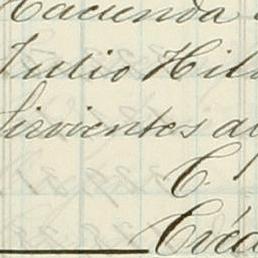 Hacienda
Julio Hil
Sirvientes al
C.
Créd